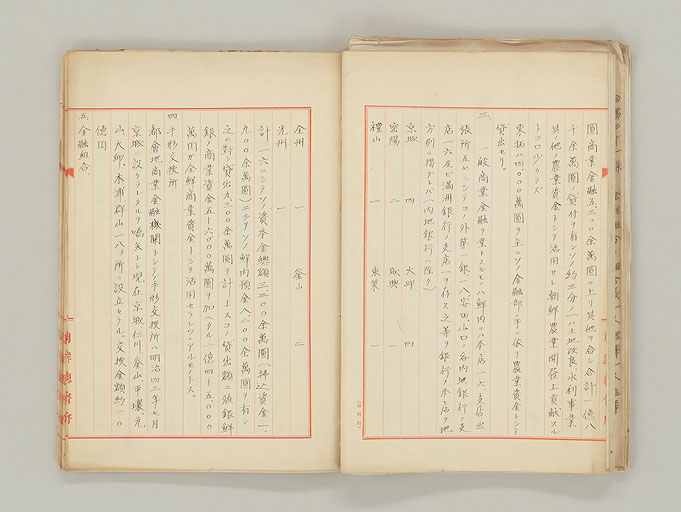 圓商業金融五三〇〇余萬圓ニ上リ其他ヲ合シ合計一億八
千余萬圓ノ貸付ヲ有シソノ約三分ノ一ハ土地改良、水利事業
其他ノ農業資金トシテ活用サレ朝鮮農業開發上貢献スル
トコロ少カラズ
東拓ハ四〇〇〇萬圓ヲ主ニソノ金融部ノ手ニ依リ農業資金トシテ
貸出セリ。
三 一般商業金融ヲ業トスルモノハ鮮内ニハ本店一六、支店出
張所五七ニシテコノ外第一銀一八安田、山口ノ各内地銀行ノ支
店一六及ビ滿洲銀行ノ支店一ヲ存ス之等ヲ銀行ノ本店ヲ地
方別ニ揚グレバ（内地銀行ハ除ク）
京城 四 大邱 四
密陽 二 咸興 二
禮山 一 東萊 一
全州 一 釜山 二
光州 一
計 一六ニシテソノ資本金總額三二〇〇余萬圓（拂込資金一、
九〇〇余萬圓）ニシテソノ鮮内預金八二〇〇余萬圓ヲ有シ
之ニ對シ貸出九三〇〇余萬圓ヲ計上スコノ貸出額ニ殖銀鮮
銀ノ商業資金五—六〇〇〇萬圓ヲ加ヘタル一億四—五、〇〇〇
萬圓ガ全鮮商業資金トシテ活用セラレツヽアルモノトス。
四 手形交換所
都會地商業金融機關トシテ手形交換所ハ明治四三年七月
京城ニ設ケラレタルヲ嚆矢トシ現在京城、仁川、釜山、平壤、元
山、大邱、木浦、群山ノ八ケ所ニ設立セラル。交換金額約一〇
億円
五、金融組合
朝鮮總督府